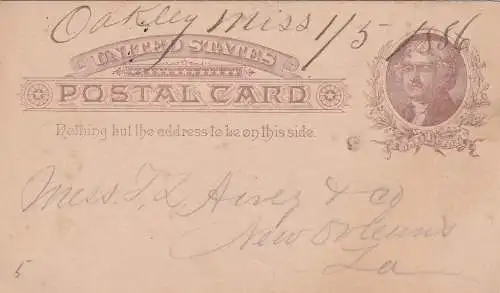 Oakley Miss 1/5 1886
UNITED STATES
POSTAL CARD
Nothing but the address to be on this side.
Mess. T. L. & Co
New Orleans
La
5